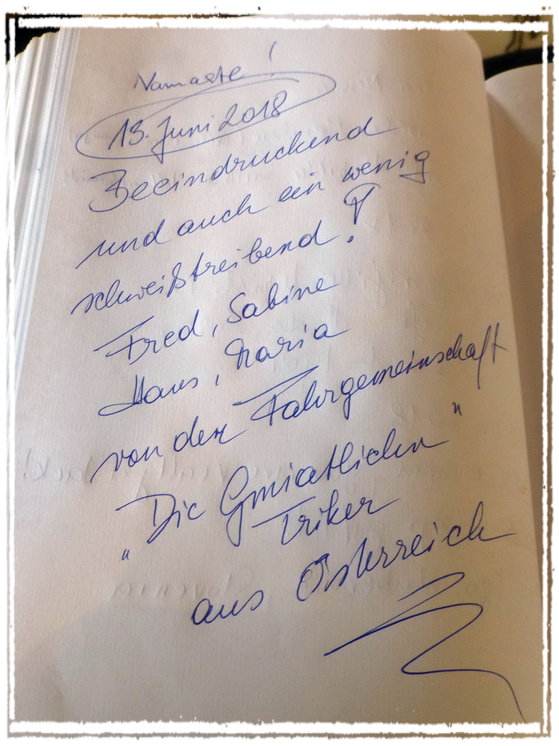 Namaste!
13. Juni 2018
Beeindruckend
und auch ein wenig
schweißtreibend!
Fred, Sabine
Hans, Maria
von der Fahrgemeinschaft
"Die Gmiatlichn"
Triker
aus Österreich